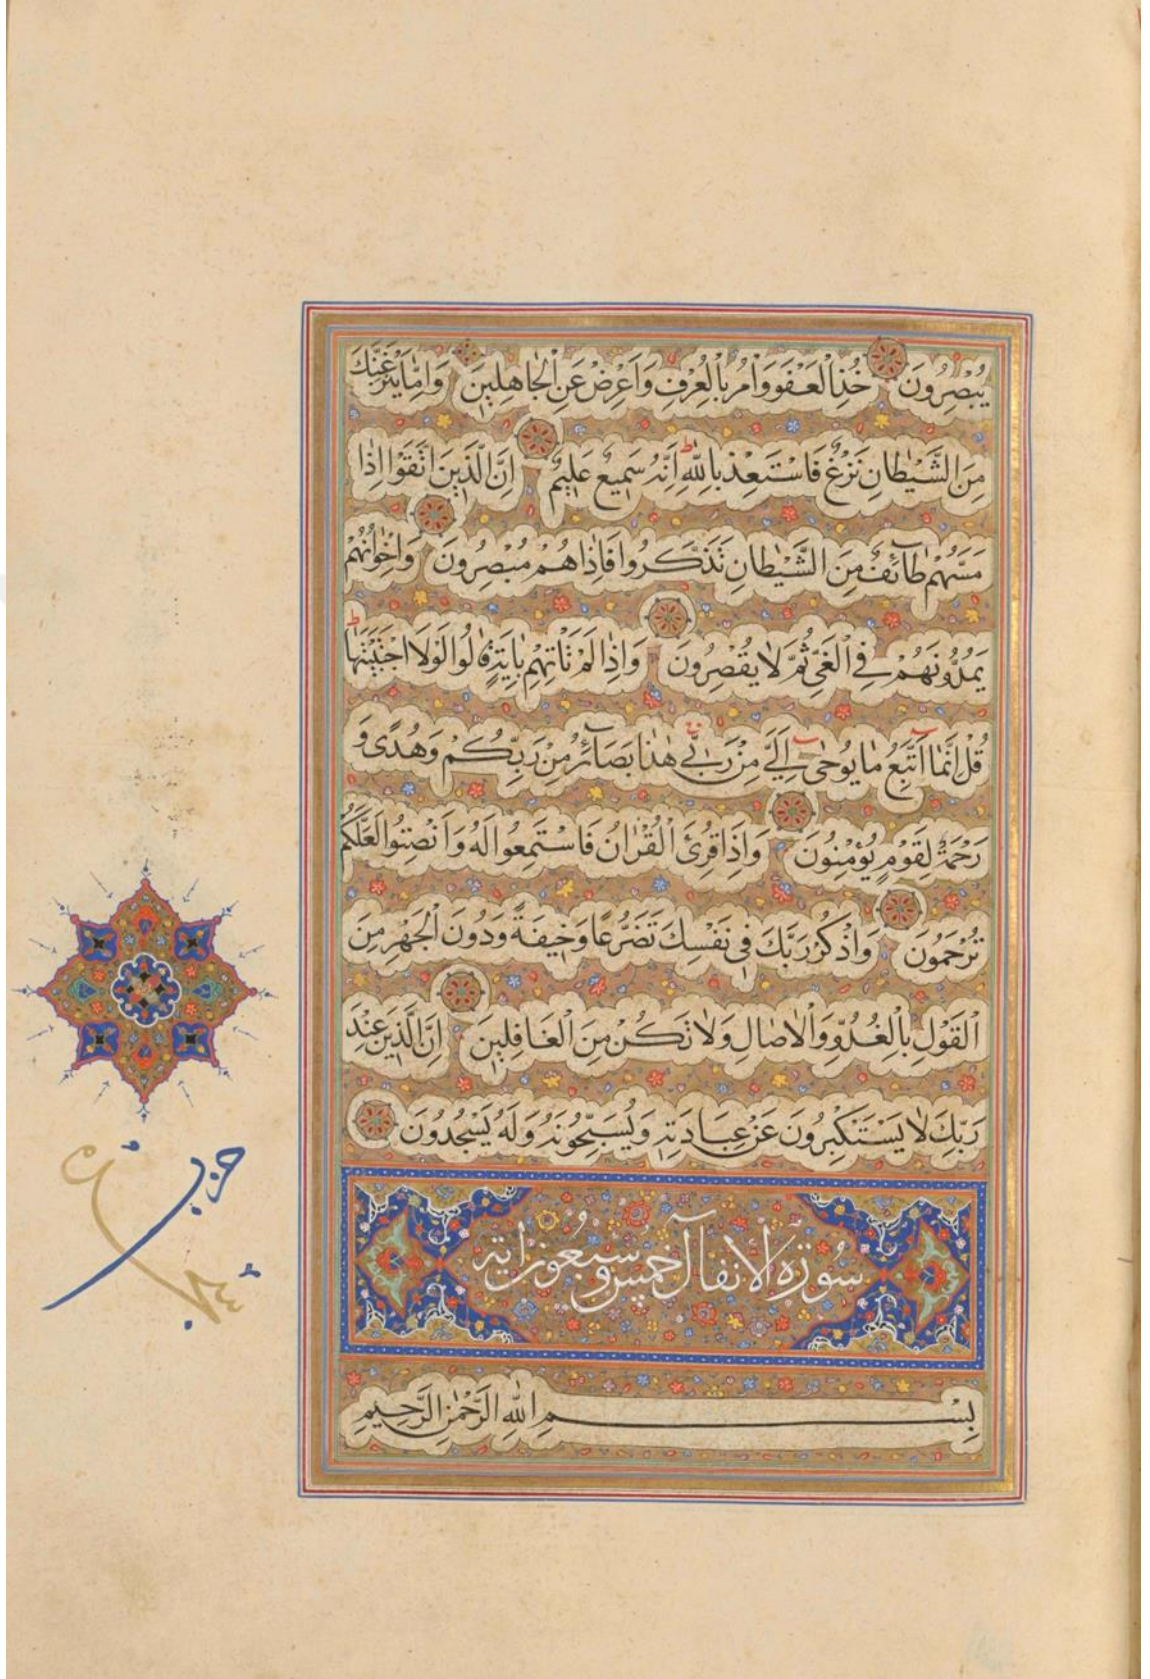 يُبْصِرُونَ خُذِ الْعَفْوَ وَأْمُرْ بِالْعُرْفِ وَاَعْرِضْ عَنِ الْجَاهِلِينَ وَاِمَّا يَنْزَغَنَّكَ
مِنَ الشَّيْطَانِ نَزْغٌ فَاسْتَعِذْ بِاللّٰهِ اِنَّهُ سَمِيعٌ عَلِيمٌ اِنَّ الَّذِينَ اتَّقَوْا اِذَا
مَسَّهُمْ طَآئِفٌ مِنَ الشَّيْطَانِ تَذَكَّرُوا فَاِذَا هُمْ مُبْصِرُونَ وَاِخْوَانُهُمْ
يَمُدُّونَهُمْ فِي الْغَيِّ ثُمَّ لَا يُقْصِرُونَ وَاِذَا لَمْ تَاْتِهِمْ بِاٰيَةٍ قَالُوا لَوْلَا اجْتَبَيْتَهَا ط
قُلْ اِنَّمَا اَتَّبِعُ مَا يُوحٰى اِلَيَّ مِنْ رَبِّي هٰذَا بَصَآئِرُ مِنْ رَبِّكُمْ وَهُدًى وَ
رَحْمَةٌ لِقَوْمٍ يُؤْمِنُونَ وَاِذَا قُرِئَ الْقُرْاٰنُ فَاسْتَمِعُوا لَهُ وَاَنْصِتُوا لَعَلَّكُمْ
تُرْحَمُونَ وَاذْكُرْ رَبَّكَ فِي نَفْسِكَ تَضَرُّعًا وَخِيفَةً وَدُونَ الْجَهْرِ مِنَ
الْقَوْلِ بِالْغُدُوِّ وَالْاٰصَالِ وَلَا تَكُنْ مِنَ الْغَافِلِينَ اِنَّ الَّذِينَ عِنْدَ
رَبِّكَ لَا يَسْتَكْبِرُونَ عَنْ عِبَادَتِهِ وَيُسَبِّحُونَهُ وَلَهُ يَسْجُدُونَ
سُورَةُ الْاَنْفَالِ خَمْسٌ وَسَبْعُونَ اٰيَة
بِسْمِ اللّٰهِ الرَّحْمٰنِ الرَّحِيمِ
حزب